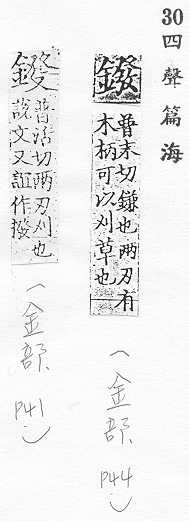 30 四聲篇海
鏺
普末切鎌也兩刃有
木柄可以刈草也
（金部 P44）
普活切兩刃刈也
說文又作撥
（金部 P41）